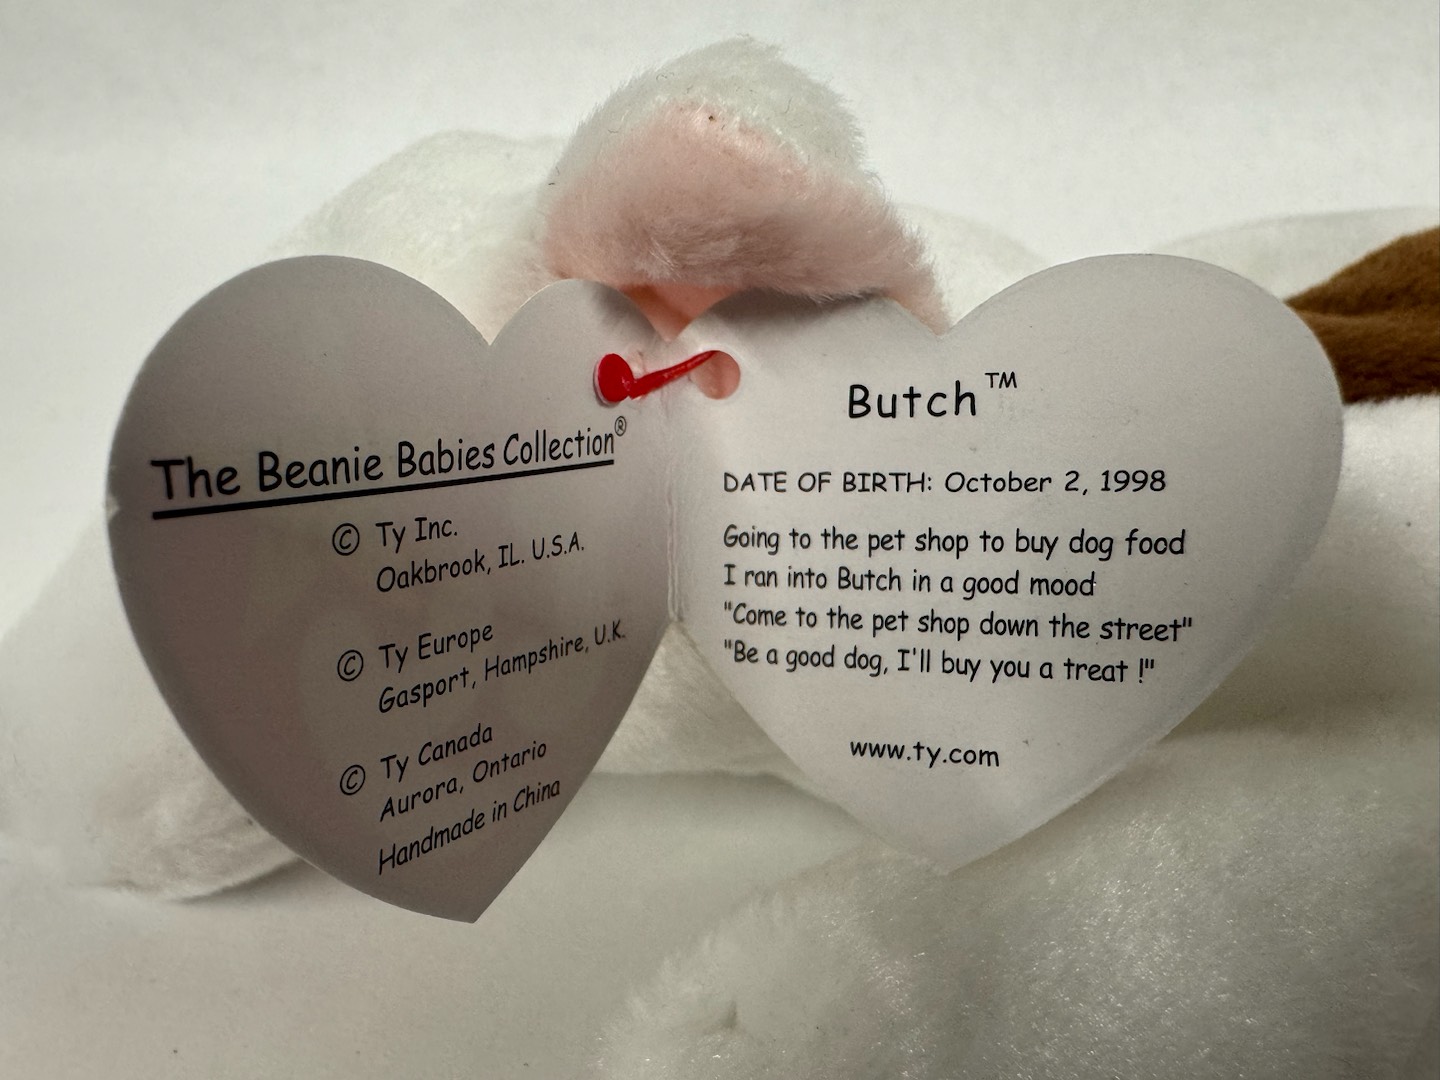 The Beanie Babies Collection®
© Ty Inc.
Oakbrook, IL. U.S.A.
© Ty Europe
Gasport, Hampshire, U.K.
© Ty Canada
Aurora, Ontario
Handmade in China
Butch™
DATE OF BIRTH: October 2, 1998
Going to the pet shop to buy dog food
I ran into Butch in a good mood
"Come to the pet shop down the street"
"Be a good dog, I'll buy you a treat !"
www.ty.com